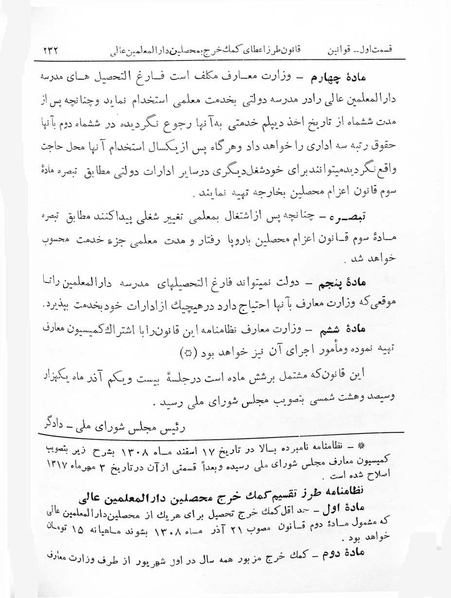 قسمت اول -- قوانین قانون طرز اعطای کمك خرج بمحصلین دار المعلمین عالی ۲۳۲
مادۀ چهارم – وزارت معارف مکلف است فارغ التحصیل های مدرسه
دار المعلمین عالی را در مدرسه دولتی بخدمت معلمی استخدام نماید و چنانچه پس از
مدت ششماه از تاریخ اخذ دیپلم خدمتی به آنها رجوع نگردیده در ششماه دوم بآنها
حقوق رتبه سه اداری را خواهد داد و هرگاه پس از یکسال استخدام آنها محل حاجت
واقع نگردید میتوانند برای خود شغل دیگری در سایر ادارات دولتی مطابق تبصره مادۀ
سوم قانون اعزام محصلین بخارجه تهیه نمایند .
تبصره – چنانچه پس از اشتغال بمعلمی تغییر شغلی پیدا کنند مطابق تبصره
مـادۀ سوم قـانون اعزام محصلین باروپا رفتار و مدت معلمی جزء خدمت محسوب
خواهد شد .
مادۀ پنجم – دولت نمیتواند فارغ التحصیلهای مدرسه دار المعلمین را تا
موقعی که وزارت معارف بآنها احتیاج دارد در هیچیك از ادارات خود بخدمت بپذیرد.
مادۀ ششم – وزارت معارف نظامنامه این قانون را با اشتراك کمیسیون معارف
تهیه نموده و مأمور اجرای آن نیز خواهد بود (※)
این قانون که مشتمل برشش ماده است در جلسۀ بیست و یکم آذر ماه یکهزار
و سیصد و هشت شمسی بتصویب مجلس شورای ملی رسید .
رئیس مجلس شورای ملی – دادگر
※ – نظامنامه نامبرده بـالا در تاریخ ۱۷ اسفند مـاه ۱۳۰۸ بشرح زیر بتصویب
کمیسیون معارف مجلس شورای ملی رسیده و بعداً قسمتی از آن در تاریخ ۳ مهر ماه ۱۳۱۷
اصلاح شده است .
نظامنامه طرز تقسیم کمك خرج محصلین دار المعلمین عالی
مادۀ اول – حد اقل کمك خرج تحصیل برای هر یك از محصلین دار المعلمین عالی
که مشمول مـادۀ دوم قـانون مصوب ۲۱ آذر مـاه ۱۳۰۸ بشوند مـاهیـانه ۱۵ تومـان
خواهد بود .
مادۀ دوم – کمك خرج مزبور همه سال در اول شهریور از طرف وزارت معارف